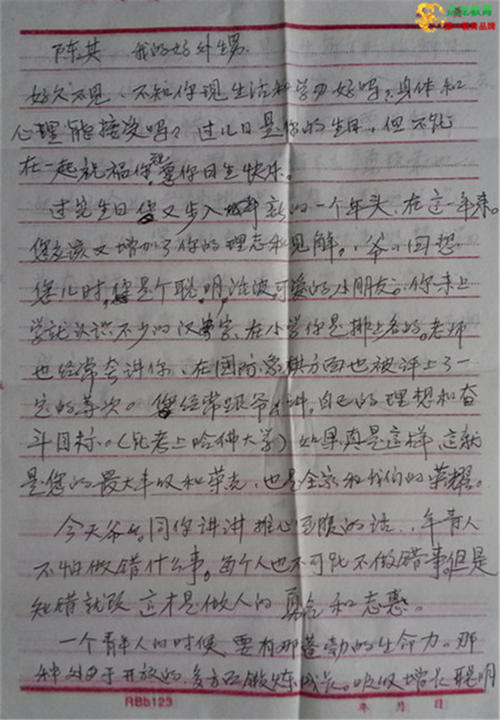 陈其 我的好外甥
好久不见、不知你现生活和学习好吗？身体和
心理能接受吗？过几日是你的生日，但不能
在一起祝福你，愿你日生快乐。
过完生日您又步入新的一个年头、在这一年来。
您应该又增加了你的理志和见解。爷回想
您儿时，您是个聪明活波可爱的小朋友。你未上
学就认识不少的汉字、在小学你是排上名的。老师
也经常夸讲你、在国际象棋方面也被评上了一
定的等次。您经常跟爷讲，自己的理想和奋
斗目标。（能考上哈佛大学）如果真是这样，这就
是您的最大丰收和荣光，也是全家和我们的荣耀。
今天爷同你讲讲推心至腹的话，年青人
不怕做错什么事。每个人也不可能不做错事，但是
知错就改 这才是做人的真会和志惠。
一个青年人的时候，要有那蓬勃的生命力。那
种对于开放的，多方面锻炼成长。吸收增长聪明
RBb123
年 月 日